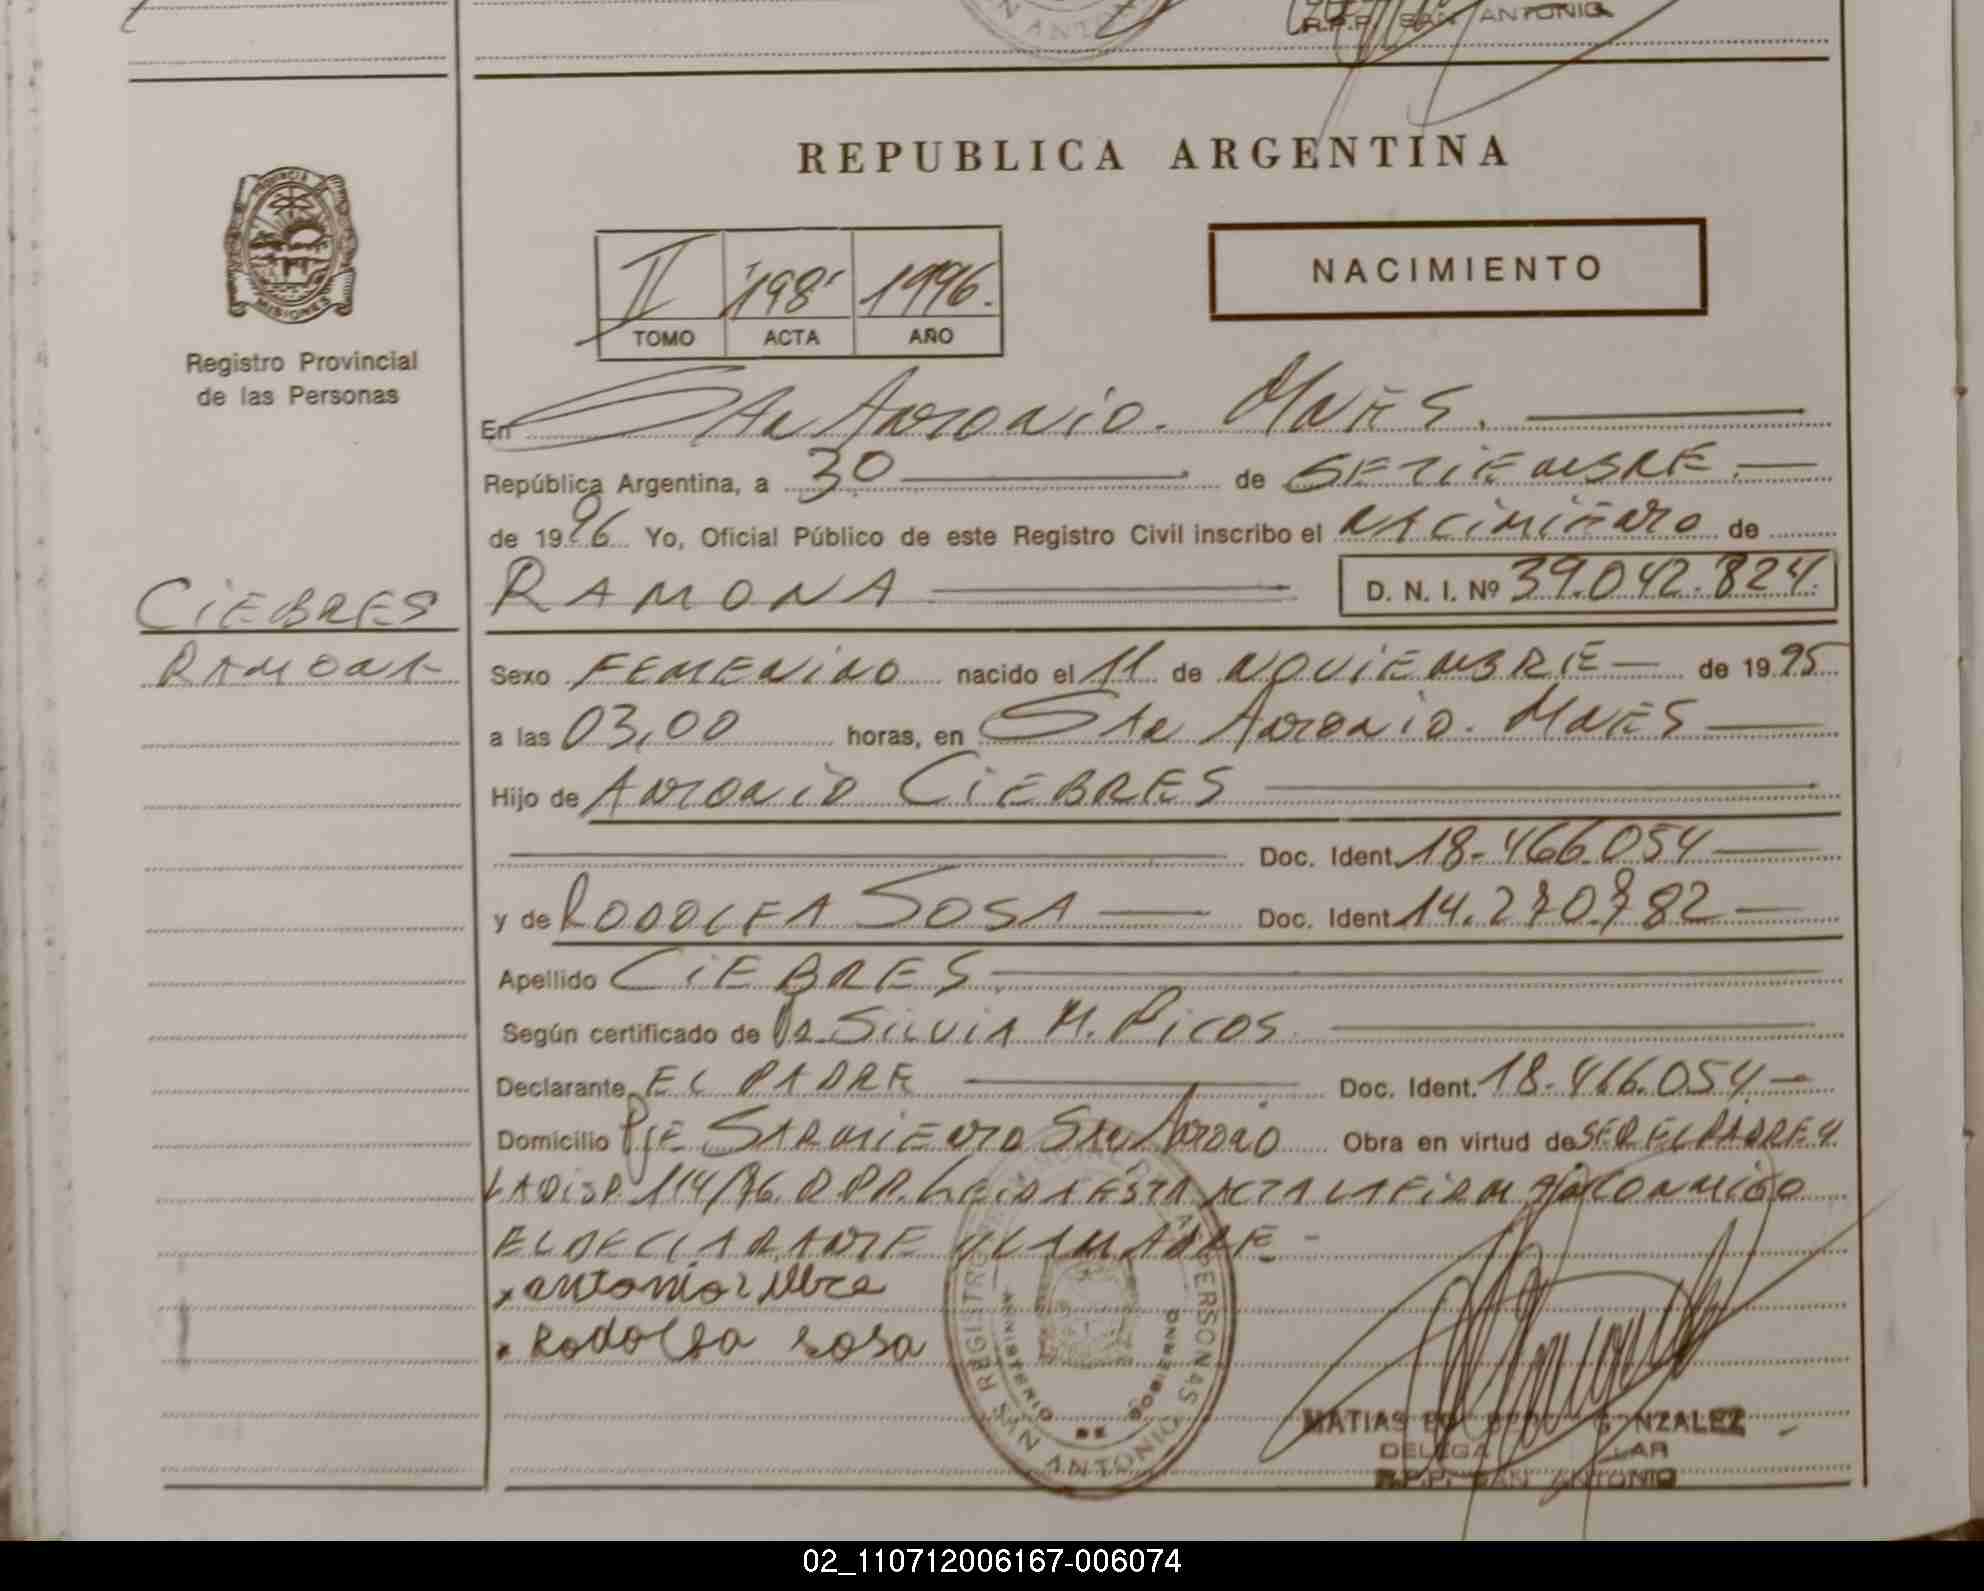 R.P.P. SAN ANTONIO
REPUBLICA ARGENTINA
PROVINCIA DE MISIONES
Registro Provincial
de las Personas
II 198 1996.
TOMO ACTA AÑO
NACIMIENTO
En San Antonio. Mnes.
República Argentina, a 30 de SETIEMBRE.
de 1996 Yo, Oficial Público de este Registro Civil inscribo el NACIMIENTO de
CIEBRES
RAMONA
RAMONA D. N. I. Nº 39.042.824.
Sexo FEMENINO nacido el 11 de NOVIEMBRE de 1995
a las 03,00 horas, en San Antonio. MNES
Hijo de ANTONIO CIEBRES
Doc. Ident. 18.466.054
y de RODOLFA SOSA Doc. Ident. 14.270.782
Apellido CIEBRES
Según certificado de Dra SILVIA M. PICOS
Declarante EL PADRE Doc. Ident. 18.466.054
Domicilio Pje SARMIENTO San Antonio Obra en virtud de SER EL PADRE Y
LA DISP. 114/96. R.P.P. LEIDA ESTA ACTA LA FIRMAN CONMIGO
EL DECLARANTE Y LA MADRE
antonio
Rodolfa sosa
REGISTRO PERSONAS
MINISTERIO DE GOBIERNO
SAN ANTONIO
MATIAS GONZALEZ
R.P.P. SAN ANTONIO
02_110712006167-006074